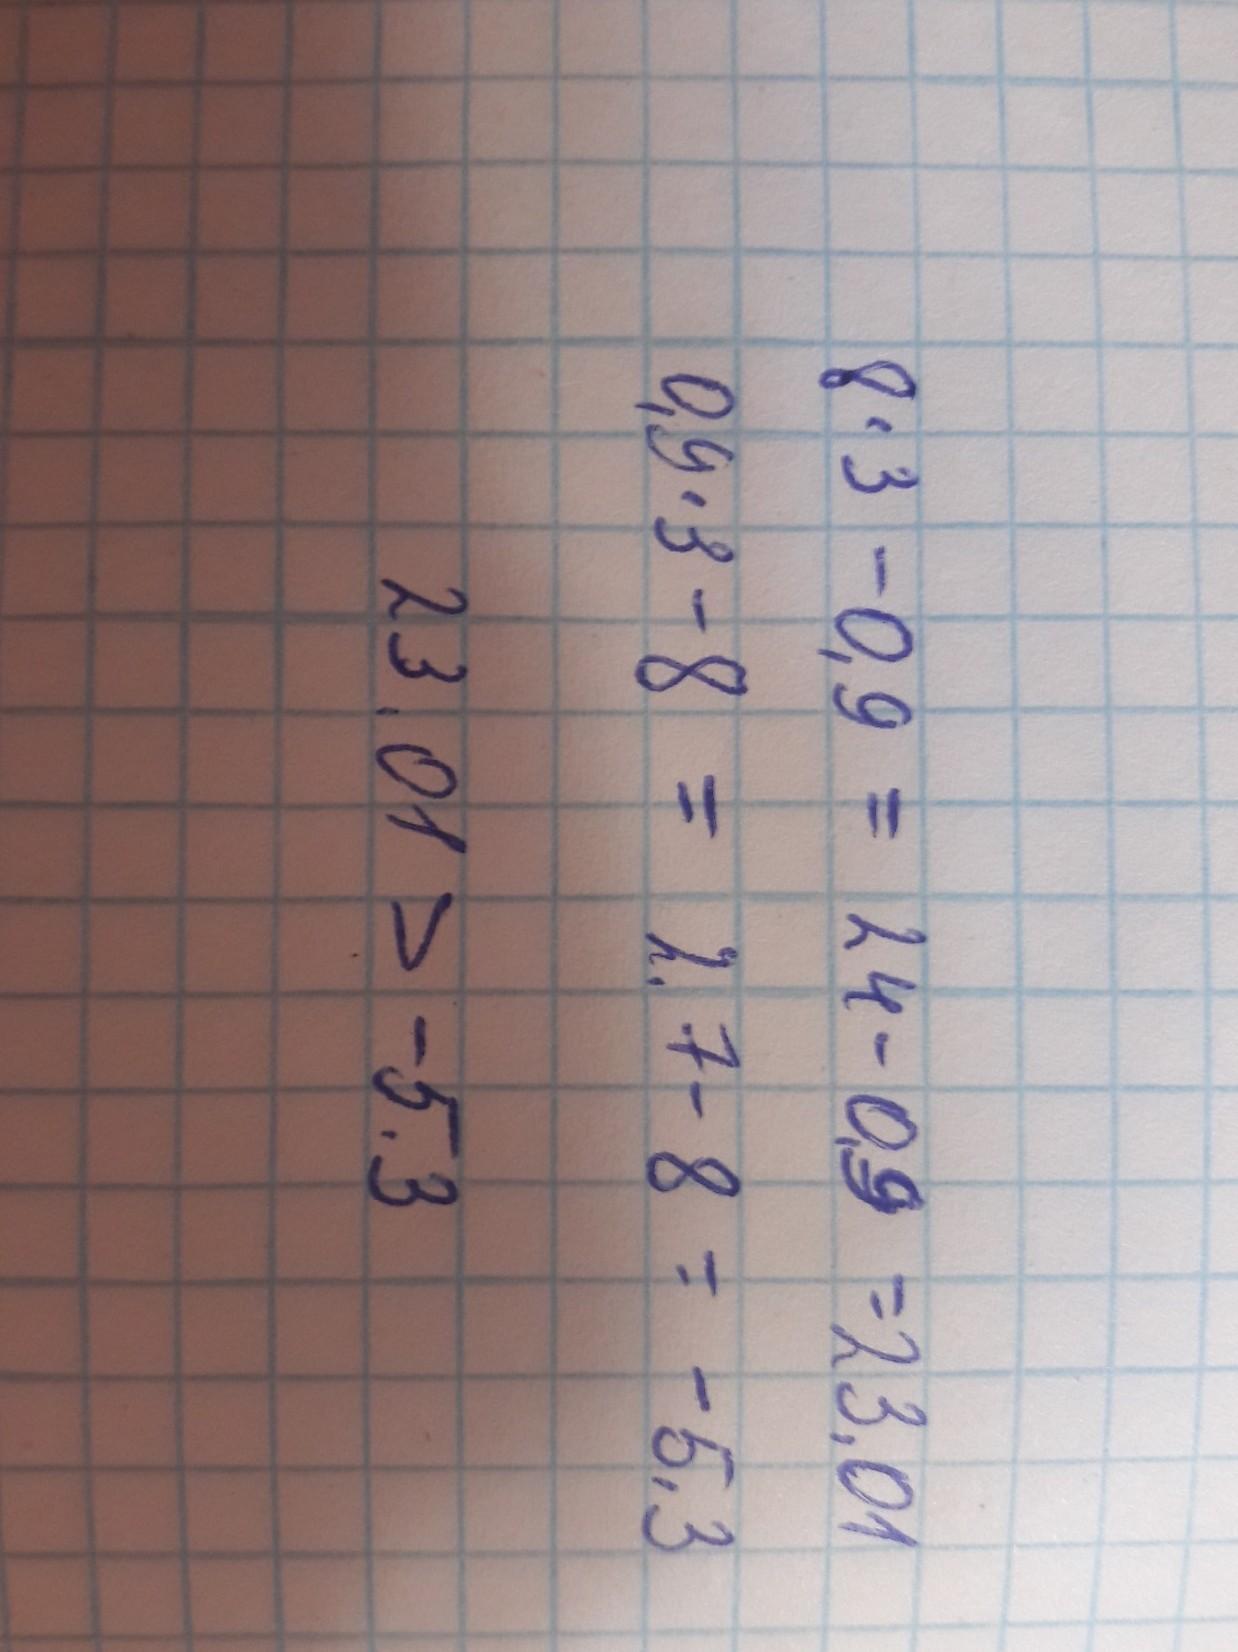 8·3 - 0,9 = 24 - 0,9 = 23,01
0,9·3 - 8 = 2.7 - 8 = -5,3
23.01 > -5.3